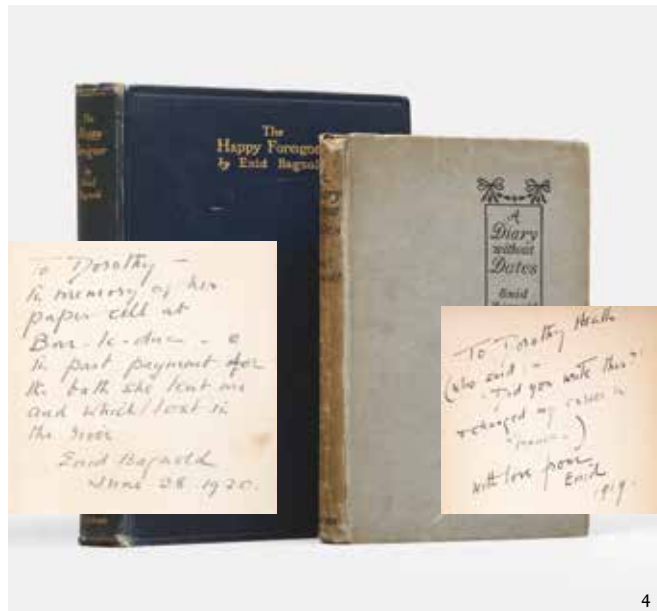 The
Happy Foreigner
by Enid Bagnold
The
Happy
Foreigner
by
Enid
Bagnold
A
Diary
without
Dates
Enid
To Dorothy –
In memory of her
paper cell at
Bar-le-duc – &
In part payment for
the bath she lent me
and which I lost in
the river
Enid Bagnold
June 28. 1920.
To Dorothy Heath
(who said :–
"Did you write this?"
& changed my career in
)
with love from
Enid
1919.
4